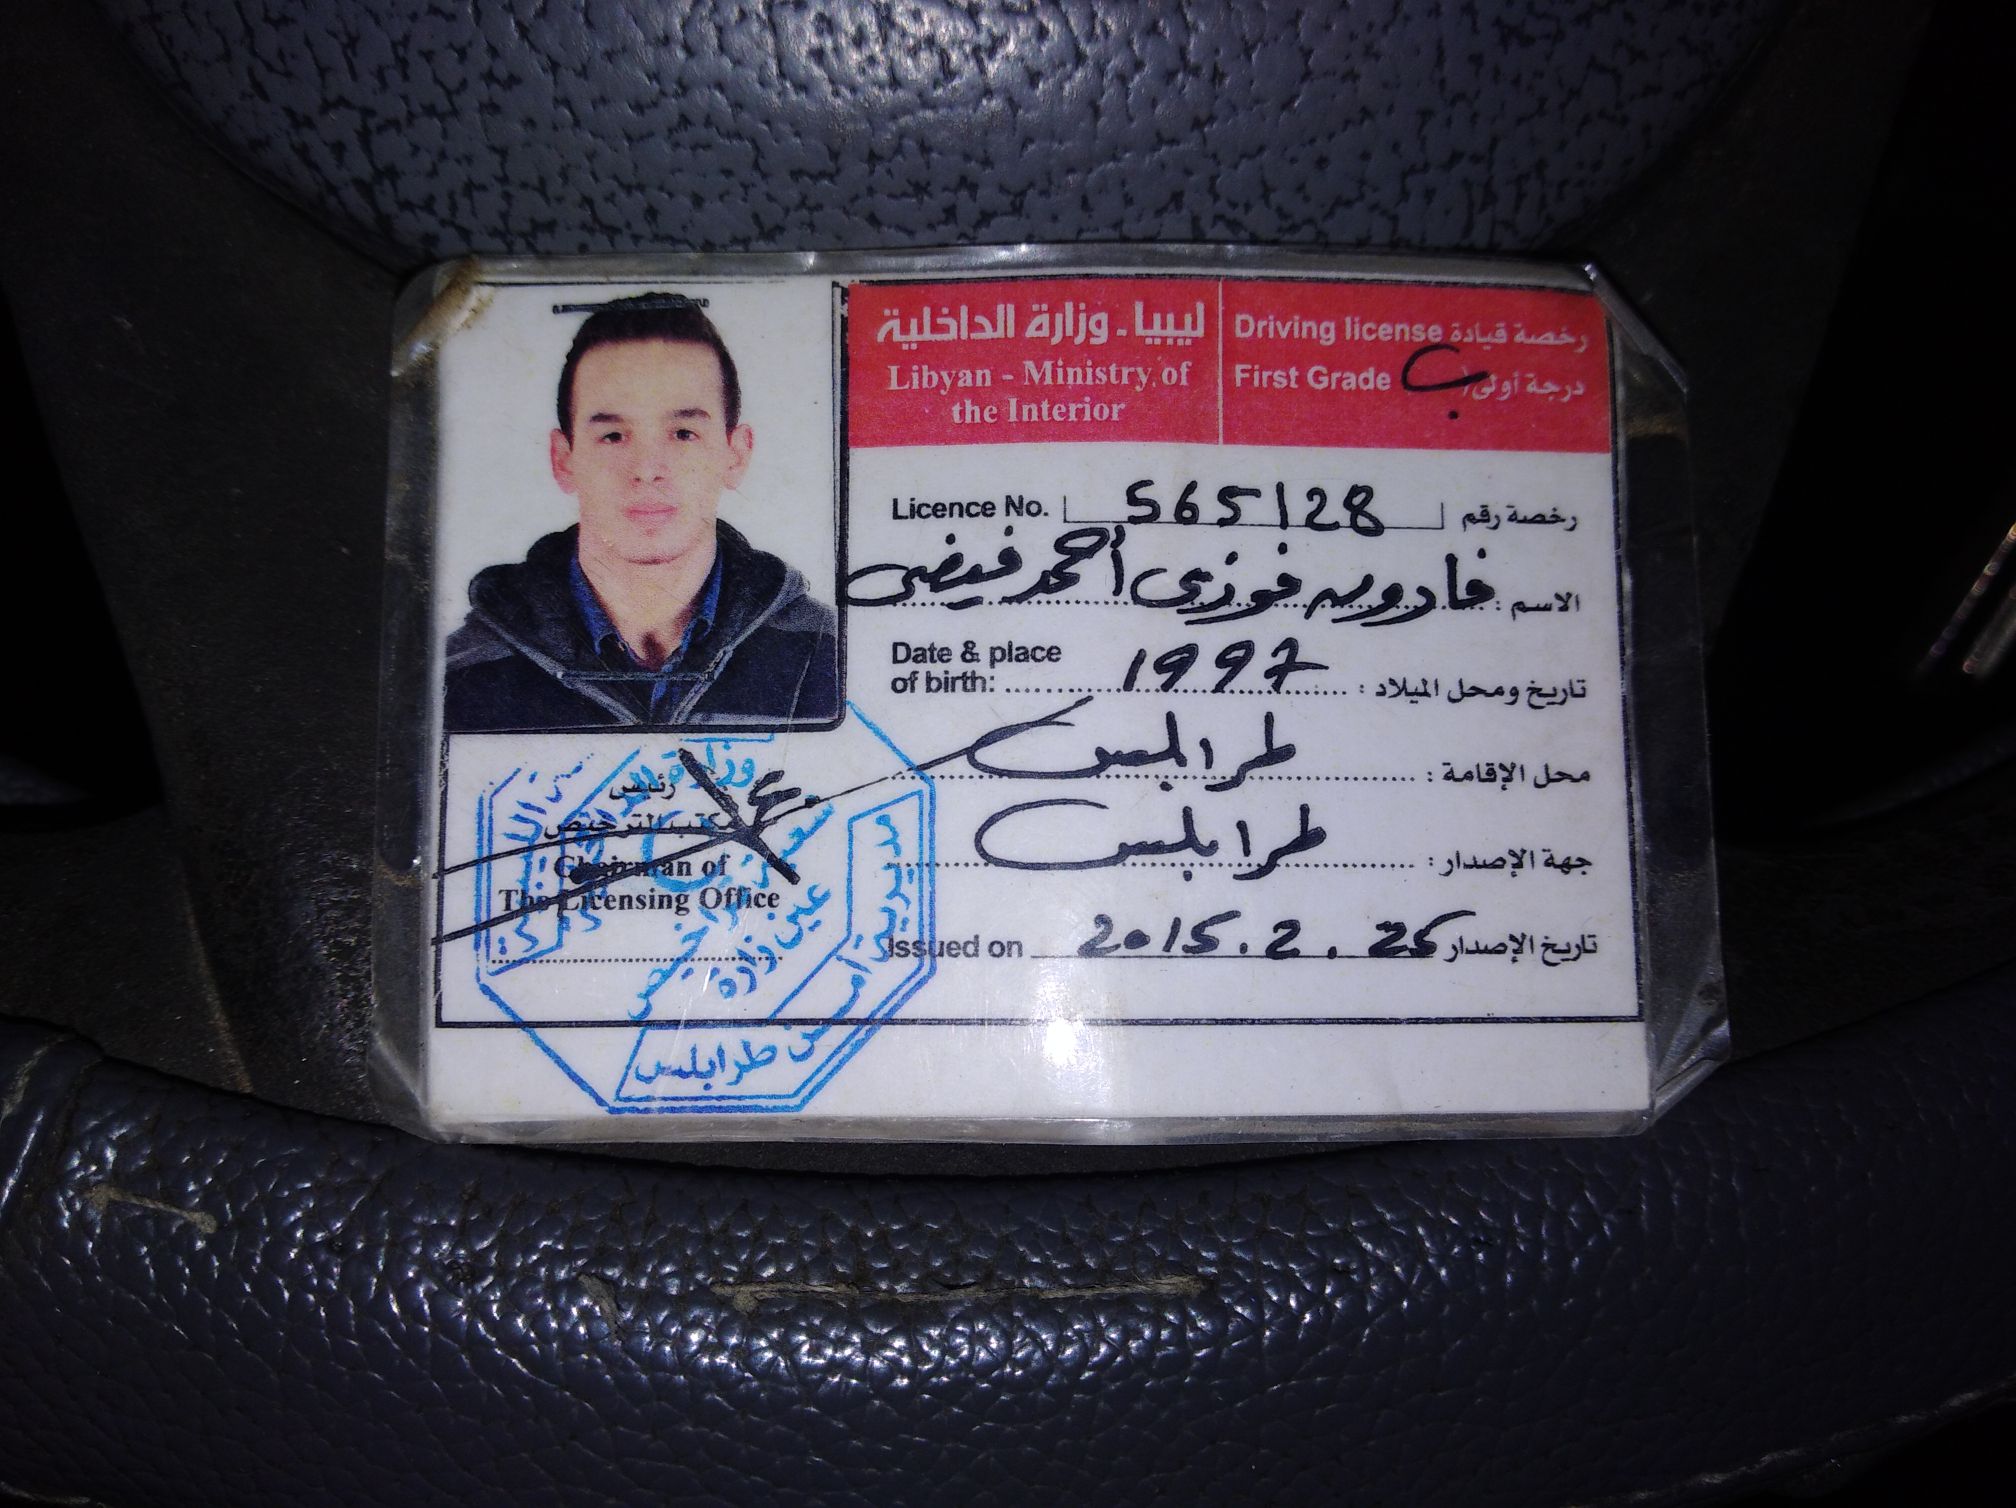 ليبيا - وزارة الداخلية
Libyan - Ministry of
the Interior
Driving license رخصة قيادة
First Grade درجة أولى ب
Licence No. 565128 رخصة رقم
الاسم : فوزي أحمد فيضي
Date & place
of birth: 1997 تاريخ ومحل الميلاد :
محل الإقامة : طرابلس
جهة الإصدار : طرابلس
Issued on 2015.2.25 تاريخ الإصدار
رئيس
مكتب الترخيص
Chairman of
The Licensing Office
وزارة الداخلية
مديرية أمن طرابلس
عين زارة